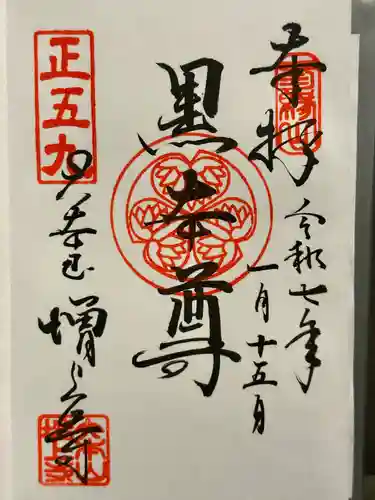 奉拝
三縁山
令和七年
一月十五日
黒本尊
正五九
大本山 増上寺